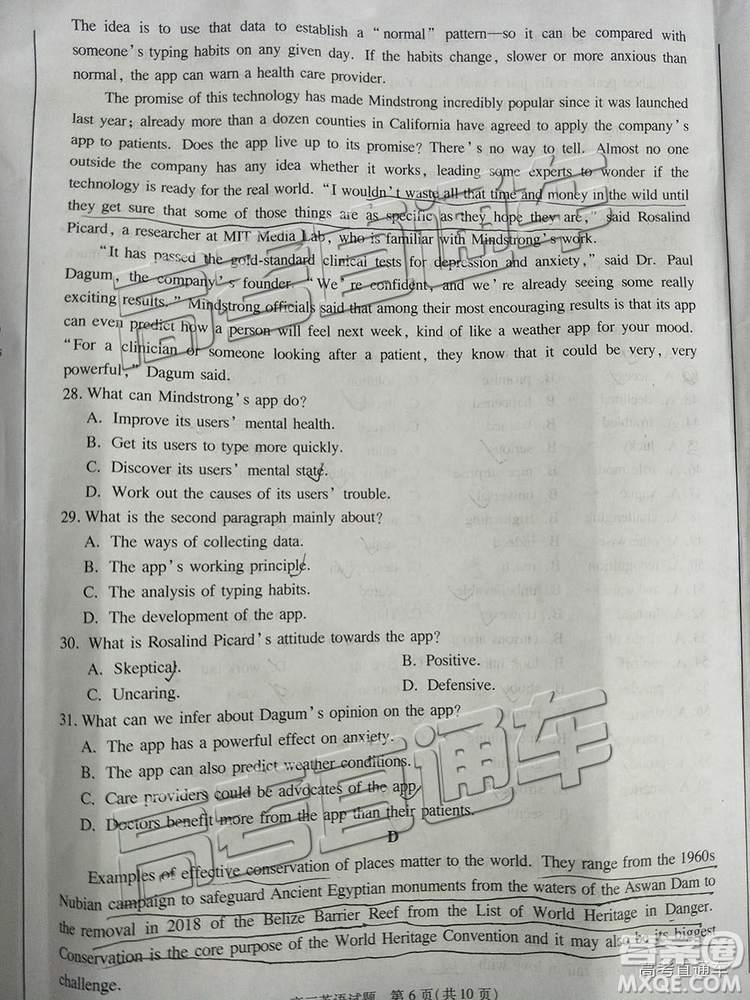 The idea is to use that data to establish a “normal” pattern—so it can be compared with
someone's typing habits on any given day. If the habits change, slower or more anxious than
normal, the app can warn a health care provider.
The promise of this technology has made Mindstrong incredibly popular since it was launched
last year; already more than a dozen counties in California have agreed to apply the company's
app to patients. Does the app live up to its promise? There's no way to tell. Almost no one
outside the company has any idea whether it works, leading some experts to wonder if the
technology is ready for the real world. “I wouldn't waste all that time and money in the wild until
they get sure that some of those things are as specific as they hope they are,” said Rosalind
Picard, a researcher at MIT Media Lab, who is familiar with Mindstrong's work.
“It has passed the gold-standard clinical tests for depression and anxiety,” said Dr. Paul
Dagum, the company's founder. “We're confident, and we're already seeing some really
exciting results.” Mindstrong officials said that among their most encouraging results is that its app
can even predict how a person will feel next week, kind of like a weather app for your mood.
“For a clinician or someone looking after a patient, they know that it could be very, very
powerful,” Dagum said.
28. What can Mindstrong's app do?
A. Improve its users' mental health.
B. Get its users to type more quickly.
C. Discover its users' mental state.
D. Work out the causes of its users' trouble.
29. What is the second paragraph mainly about?
A. The ways of collecting data.
B. The app's working principle.
C. The analysis of typing habits.
D. The development of the app.
30. What is Rosalind Picard's attitude towards the app?
A. Skeptical. B. Positive.
C. Uncaring. D. Defensive.
31. What can we infer about Dagum's opinion on the app?
A. The app has a powerful effect on anxiety.
B. The app can also predict weather conditions.
C. Care providers could be advocates of the app.
D. Doctors benefit more from the app than their patients.
D
Examples of effective conservation of places matter to the world. They range from the 1960s
Nubian campaign to safeguard Ancient Egyptian monuments from the waters of the Aswan Dam to
the removal in 2018 of the Belize Barrier Reef from the List of World Heritage in Danger.
Conservation is the core purpose of the World Heritage Convention and it may also be its biggest
challenge.
高三英语试题 第6页(共10页)
高考直通车
高考直通车
高考直通车
答案圈
MXQE.COM